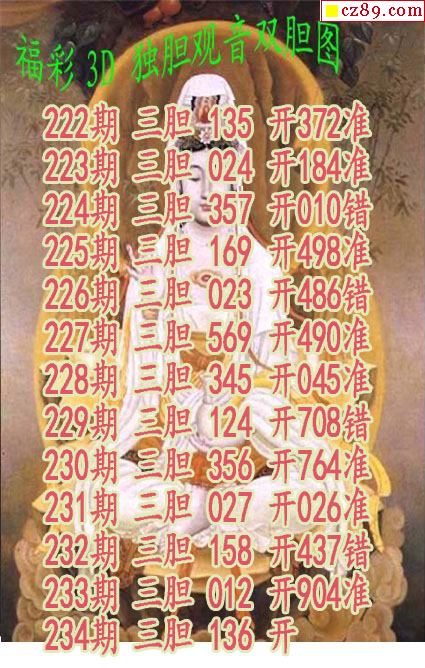 cz89.com
福彩3D 独胆观音双胆图
222期 三胆 135 开372准
223期 三胆 024 开184准
224期 三胆 357 开010错
225期 三胆 169 开498准
226期 三胆 023 开486错
227期 三胆 569 开490准
228期 三胆 345 开045准
229期 三胆 124 开708错
230期 三胆 356 开764准
231期 三胆 027 开026准
232期 三胆 158 开437错
233期 三胆 012 开904准
234期 三胆 136 开